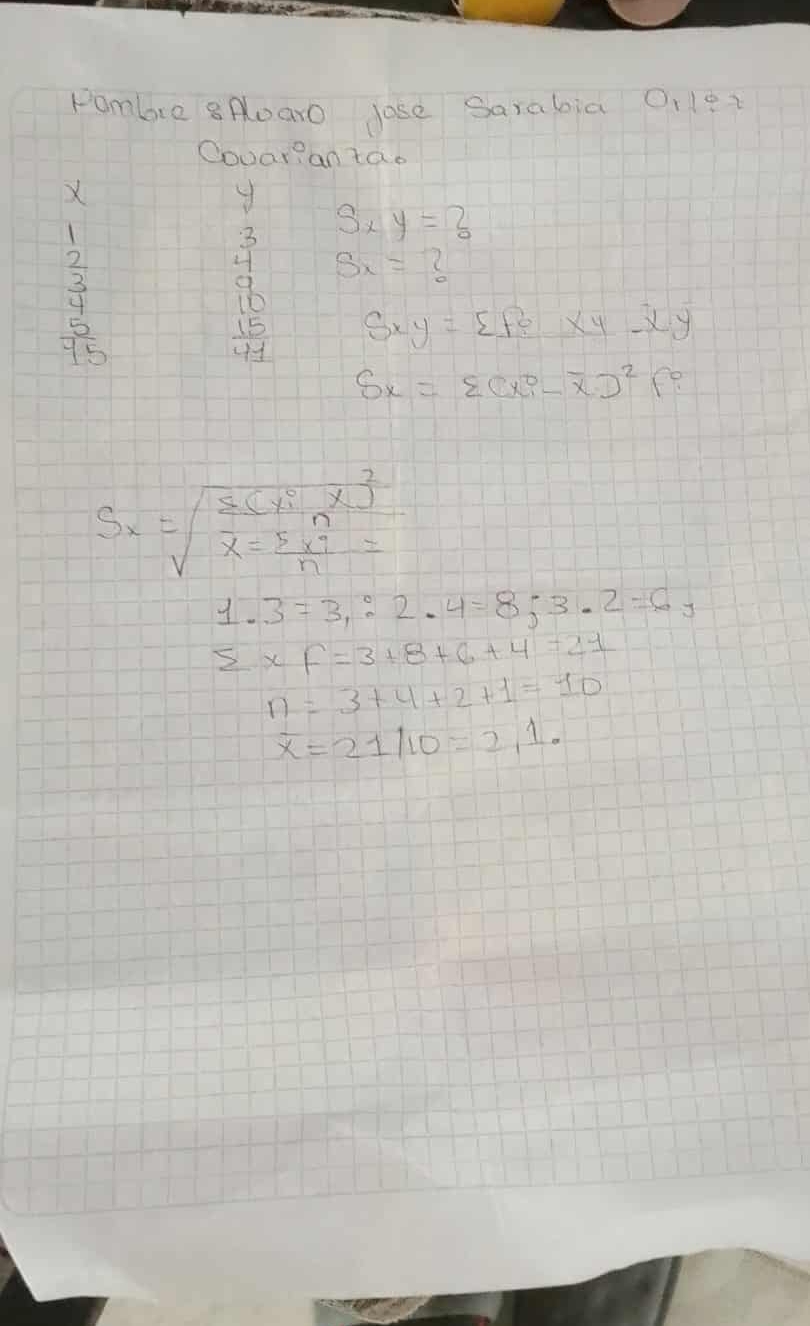 Nombre : Alvaro José Sarabia Ortiz
Covarianza.
x y
1 3
2 4
3 9
4 10
5 15
15 41
Sxy = ?
Sx = ?
Sxy = Σfi xy - x̄ȳ
Sx = Σ(xi - x̄)² fi
Sx = √Σ(xi x̄)²
n
x̄ = Σxi =
n
1.3=3, : 2.4=8; 3.2=6,
Σxf=3+8+6+4=21
n=3+4+2+1=10
x̄=21/10=2,1.